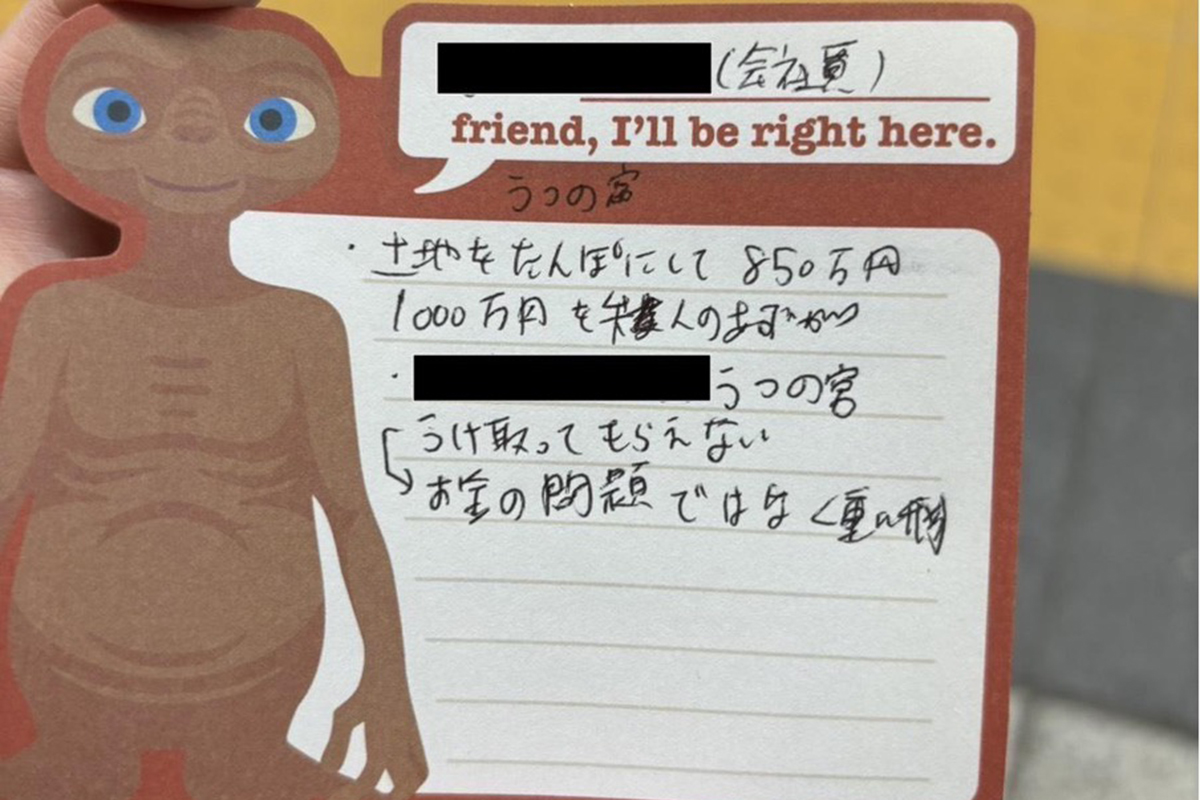 (会社員)
friend, I'll be right here.
うつの宮
・土地をたんぽにして 850万円
1000万円を 人のあずかり
・うつの宮
うけ取ってもらえない
お金の問題ではなく重い刑